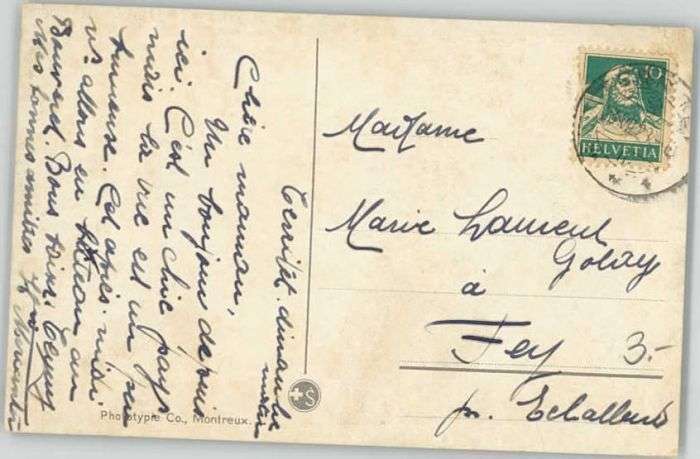 Territet. dimanche
matin
Chère maman,
Un bonjour depuis
ici. C'est un chic pays
mais la vue est un peu
brumeuse. Cet après-midi
ns. allons en bateau au
Bouveret. Bons baisers
Mes bonnes amitiés
Madame
Marie Laurent
Golay
à
Fey 3.-
pr. Echallens
10
HELVETIA
Phototypie Co., Montreux.
S